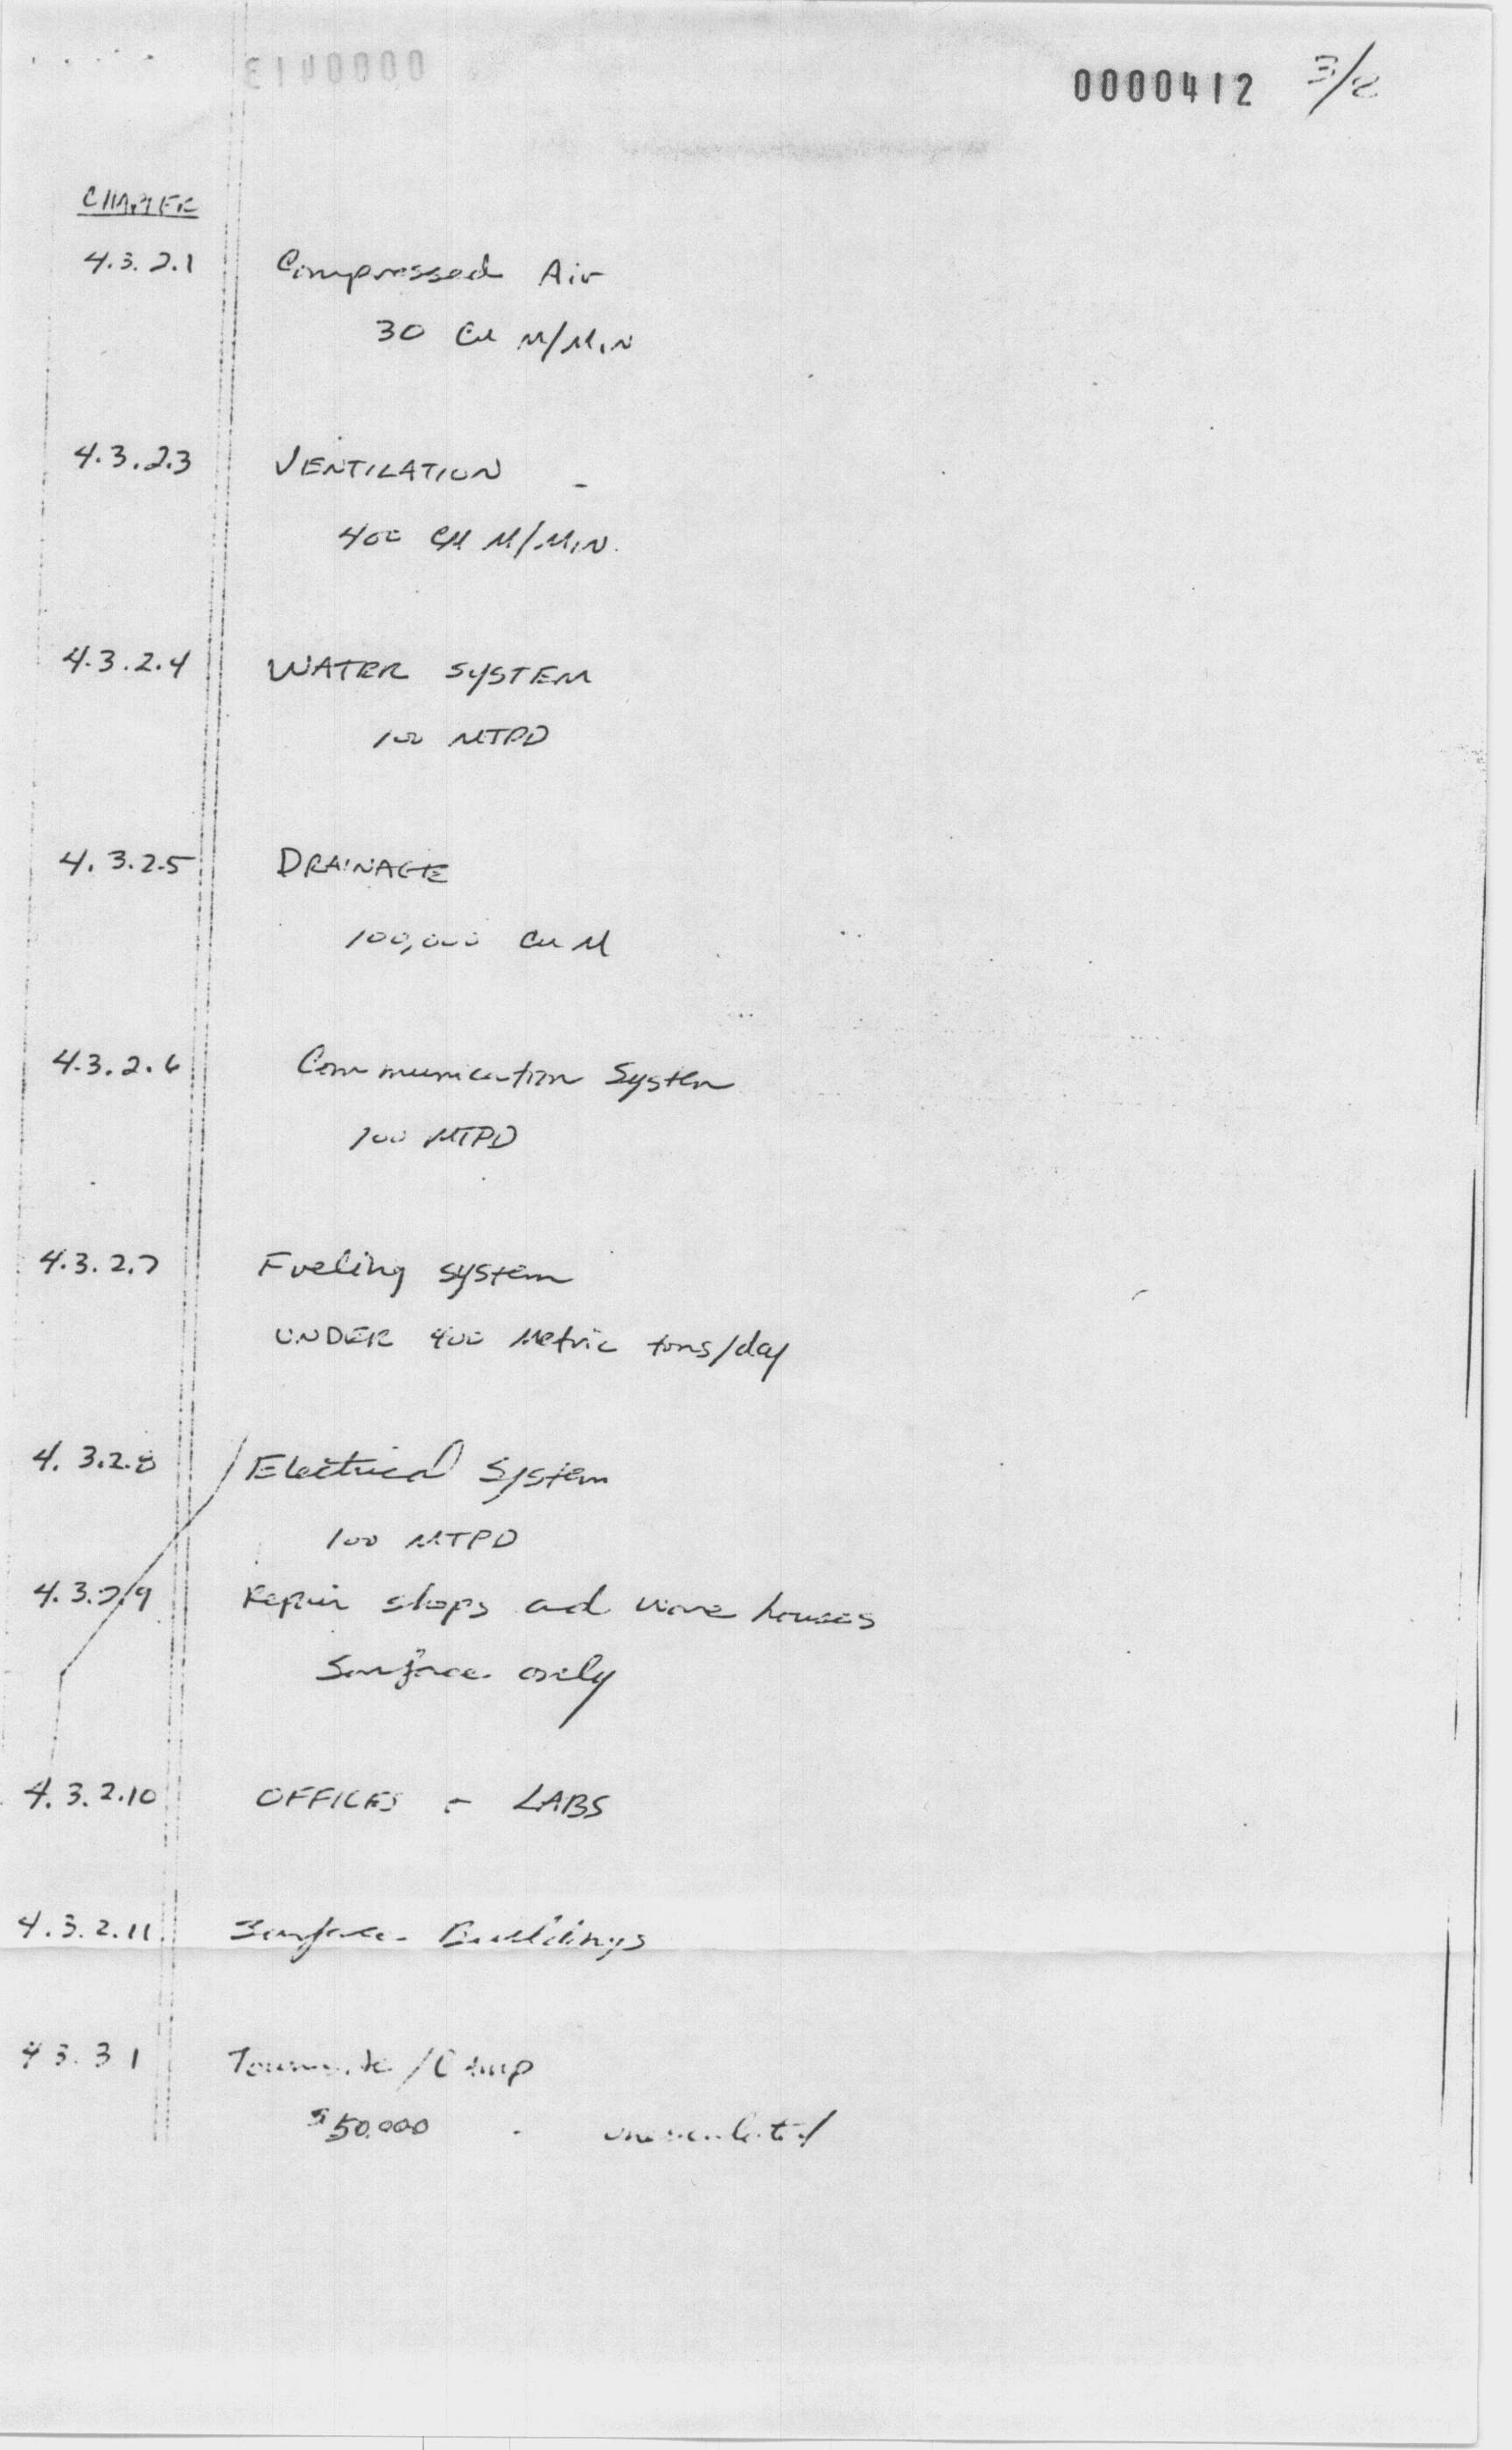 0000412 3/8
CHAPTER
4.3.2.1 Compressed Air
30 CU M/MIN
4.3.2.3 VENTILATION -
400 CU M/MIN.
4.3.2.4 WATER SYSTEM
100 MTPD
4.3.2.5 DRAINAGE
100,000 CU M
4.3.2.6 Communication System
100 MTPD
4.3.2.7 Fueling system
UNDER 400 Metric tons/day
4.3.2.8 Electrical System
100 MTPD
4.3.2.9 Repair shops and warehouses
Surface only
4.3.2.10 OFFICES - LABS
4.3.2.11 Surface Buildings
4.3.3.1 Townsite/Camp
$50,000 -